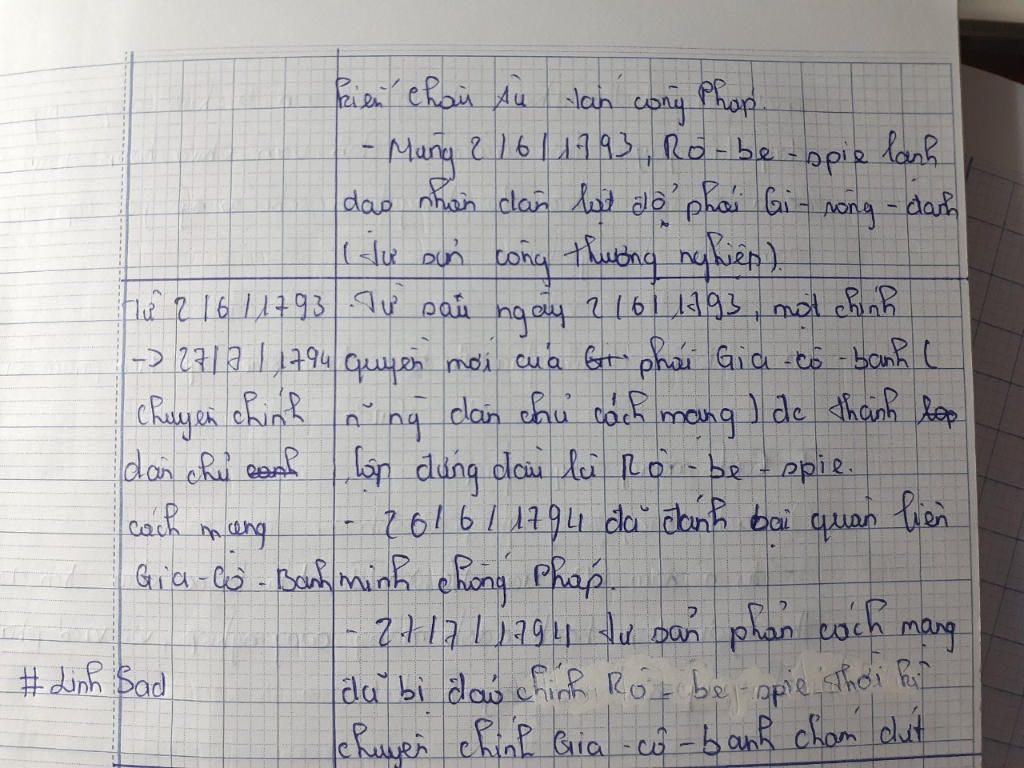 kiến châu Âu tấn công Pháp.
- Mùng 2/6/1793, Rô-be-spie lãnh
đạo nhân dân lật đổ phái Gi-rông-đanh
(Tư sản công thương nghiệp).
Từ 2/6/1793
→ 27/7/1794
chuyên chính
dân chủ
cách mạng
Gia-cô-banh
- Từ sau ngày 2/6/1793, một chính
quyền mới của phái Gia-cô-banh (
nền dân chủ cách mạng) đc thành
lập đứng đầu là Rô-be-spie.
- 26/6/1794 đã đánh bại quân liên
minh chống Pháp.
- 27/7/1794 tư sản phản cách mạng
đã bị đảo chính Rô-be-spie. Thời kì
chuyên chính Gia-cô-banh chấm dứt
# Linh Sad